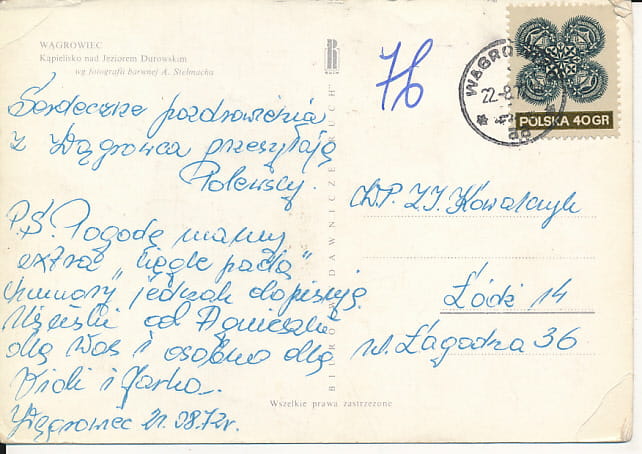 WĄGROWIEC
Kąpielisko nad Jeziorem Durowskim
wg fotografii barwnej A. Stelmacha
Serdeczne pozdrowienia
z Wągrowca przesyłają
Polewscy.
P.S. Pogodę mamy
extra "ciągle pada"
humory jednak dopisują.
Uściski od Agnieszki
dla Was i osobno dla
Violi i Jarka.
Wągrowiec 21.08.72r.
76
BIURO WYDAWNICZE RUCH
WĄGRO
22-8
POLSKA 40 GR
W.P. Z.J. Kowalczyk
Łódź 14
ul. Łagodza 36
Wszelkie prawa zastrzeżone